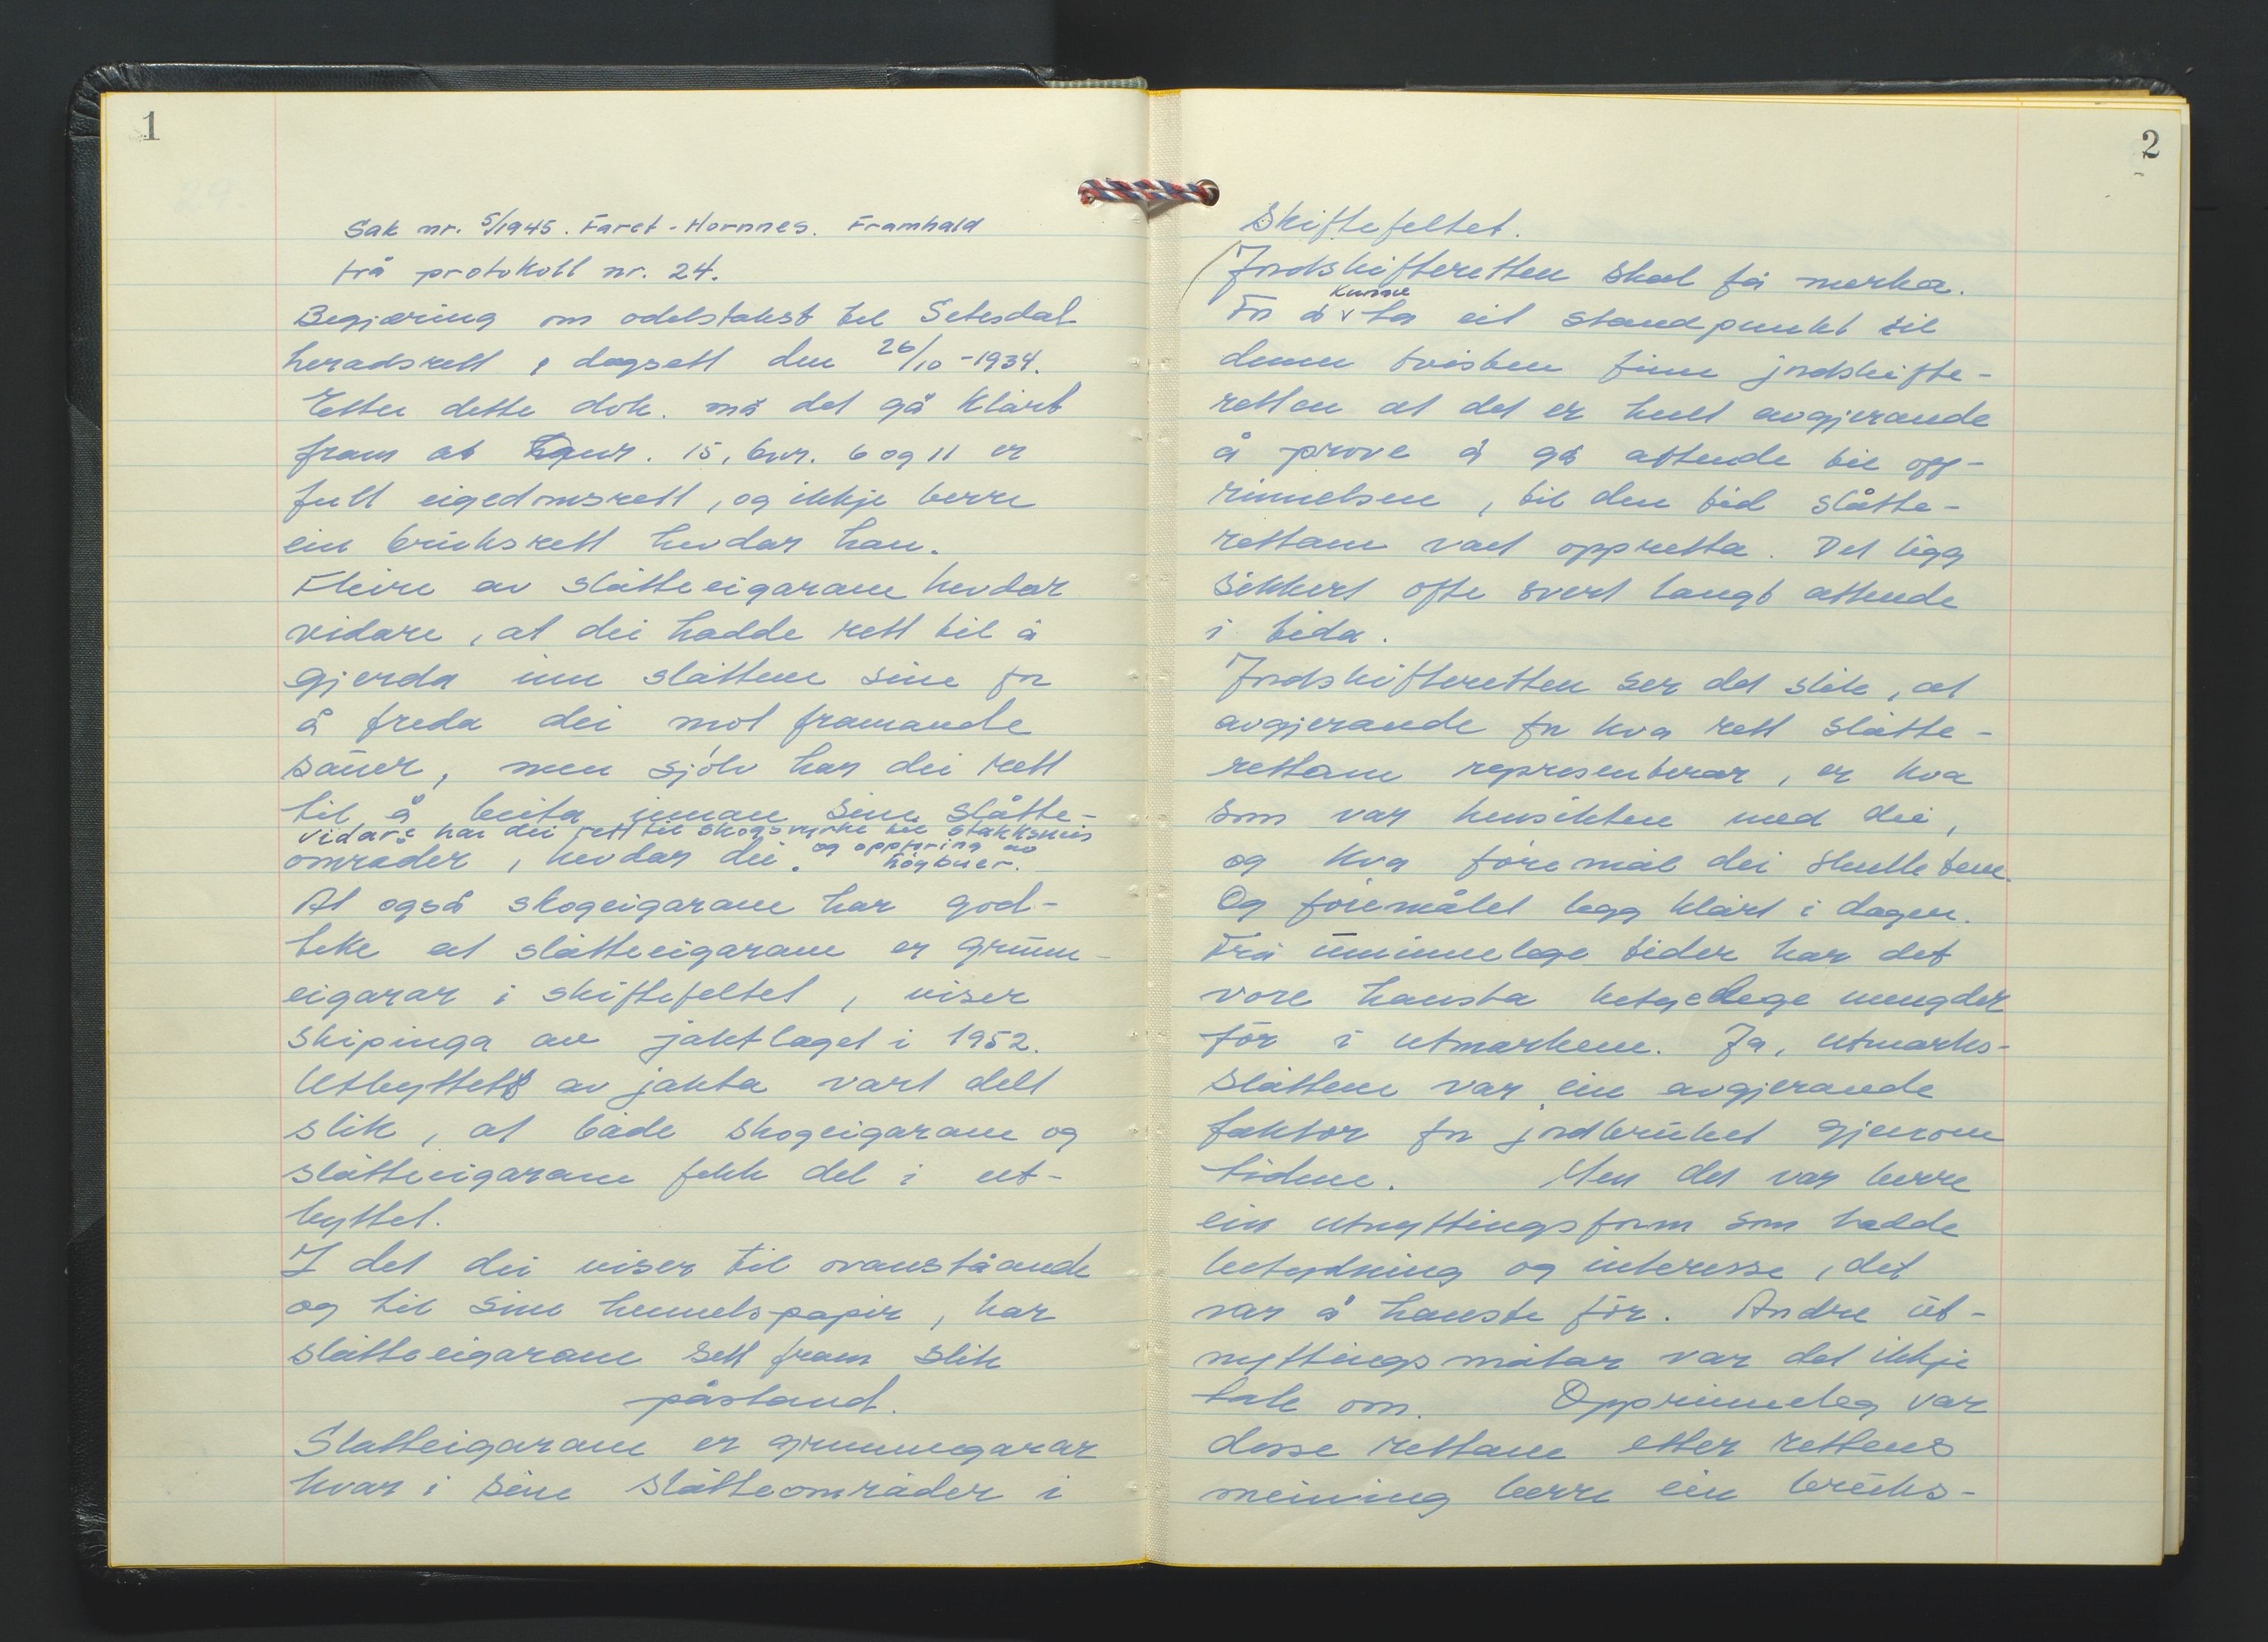 1
Sak nr. 5/1945. Faret - Hornnes. Framhald
frå protokoll nr. 24.
Begjæring om odelstakst til Setesdal
heradsrett, dagsett den 26/10-1934.
Etter dette dok. må det gå klårt
fram at gnr. 15, bnr. 6 og 11 er
full eigedomsrett, og ikkje berre
ein bruksrett hevdar han.
Fleire av slåtteeigarane hevdar
vidare, at dei hadde rett til å
gjerda inn slåttene sine for
å freda dei mot framande
sauer, men sjølv har dei rett
til å beita innan sine slåtte-
vidare har dei rett til skogsvyrke til stakksneis
områder, hevdar dei. og oppføring av
høybuer.
At også skogeigarane har god-
teke at slåtteeigarane er grunn-
eigarar i skiftefeltet, viser
skipinga av jaktlaget i 1952.
Utbyttet av jakta vart delt
slik, at både skogeigarane og
slåtteeigarane fekk del i ut-
byttet.
I det dei viser til ovanståande
og til sine heimelspapir, har
slåtteeigarane sett fram slik
påstand.
Slåtteigarane er grunneigarar
kvar i sine slåtteområder i
2
skiftefeltet.
Jordskifteretten skal få merka.
For å kunne ta eit standpunkt til
denne tvisten finn jordskifte-
retten at det er heilt avgjerande
å prøve å gå attende til opp-
rinnelsen, til den tid slåtte-
rettane vart oppretta. Det ligg
sikkert ofte svert langt attende
i tida.
Jordskifteretten ser det slik, at
avgjerande for kva rett slåtte-
rettane representerar, er kva
som var hensikten med dei,
og kva föremål dei skulle tene.
Og föremålet legg klårt i dagen.
Frå uminnelege tider har det
vore hausta betydelege mengder
fôr i utmarkene. Ja, utmarks-
slåttene var ein avgjerande
faktor for jordbruket gjenom
tidene. Men det var berre
ein utnyttingsform som hadde
betydning og interesse, det
var å hauste fôr. Andre ut-
nyttingsmåtar var det ikkje
tale om. Opprinneleg var
desse rettane etter rettens
meining berre ein bruks-